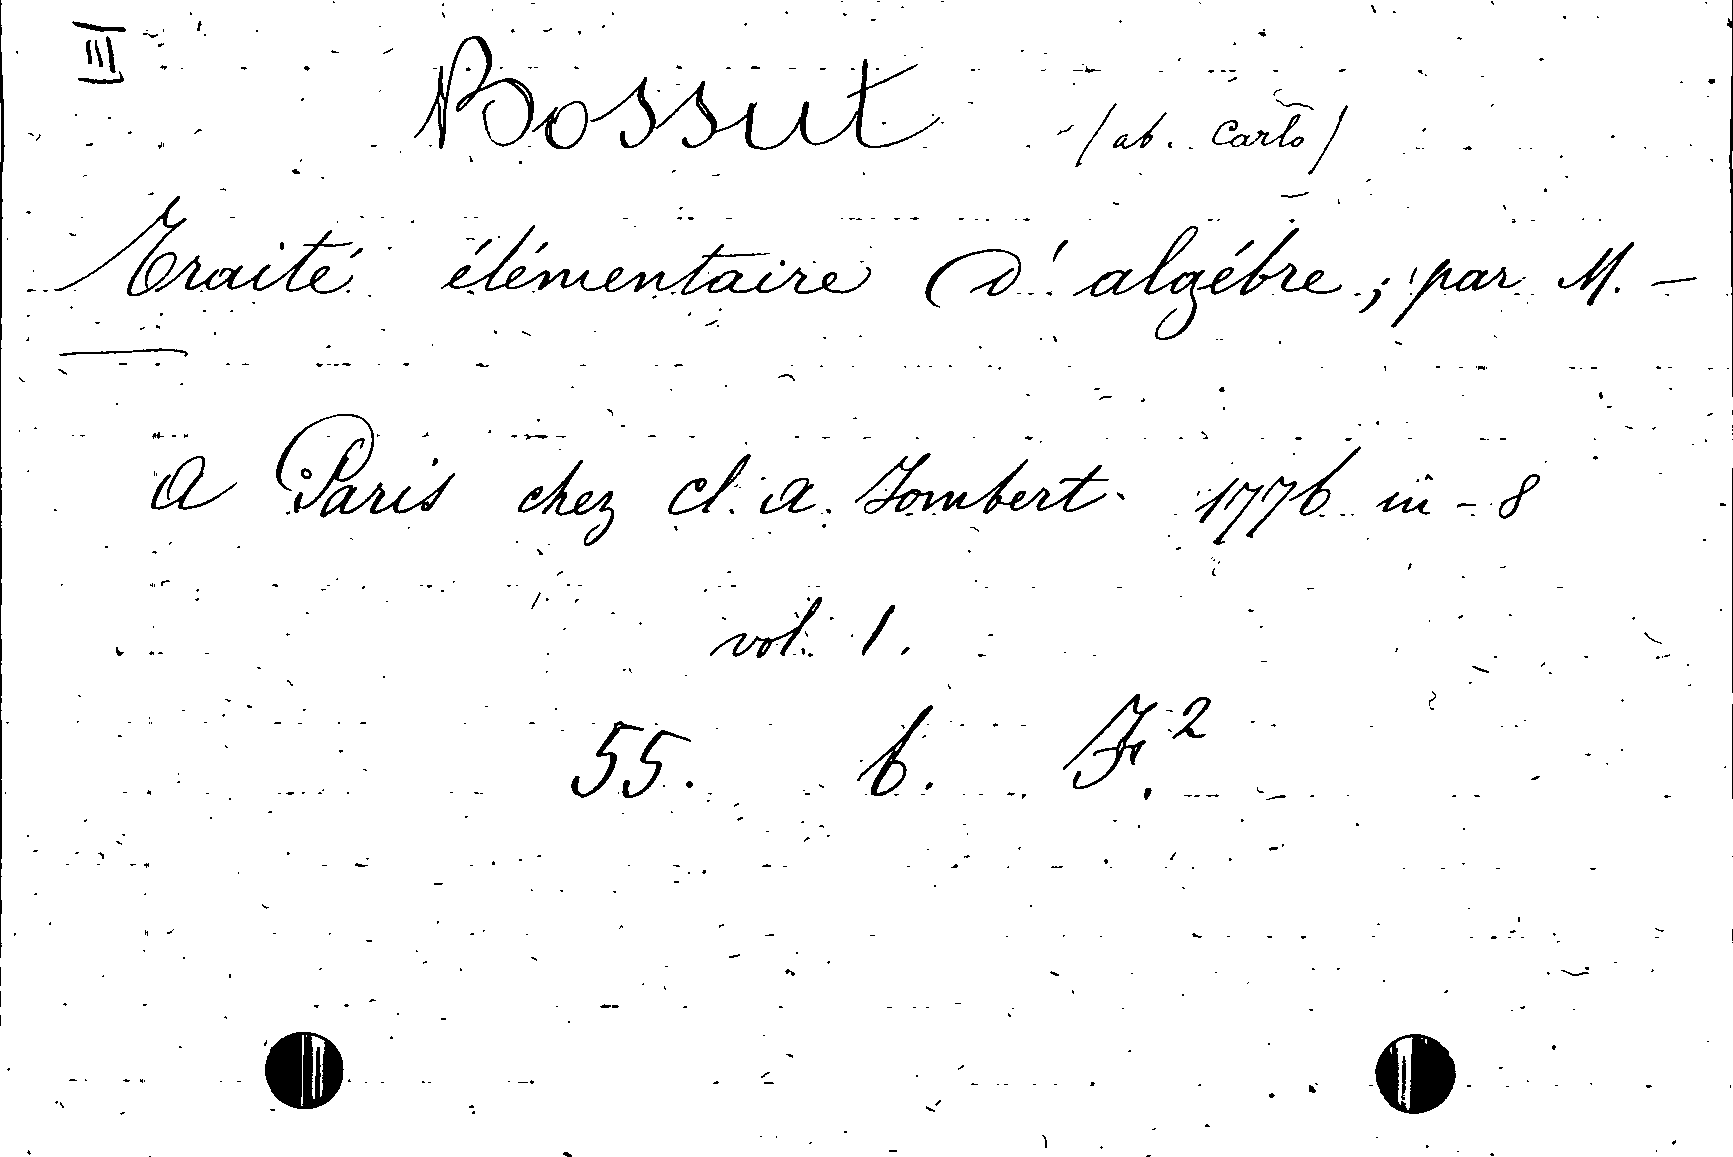 III
Bossut (ab. Carlo)
Traité élémentaire d'algébre ; par M. —
—
A Paris chez Cl. A. Jombert. 1776 in-8
vol. 1.
55. b. F.2